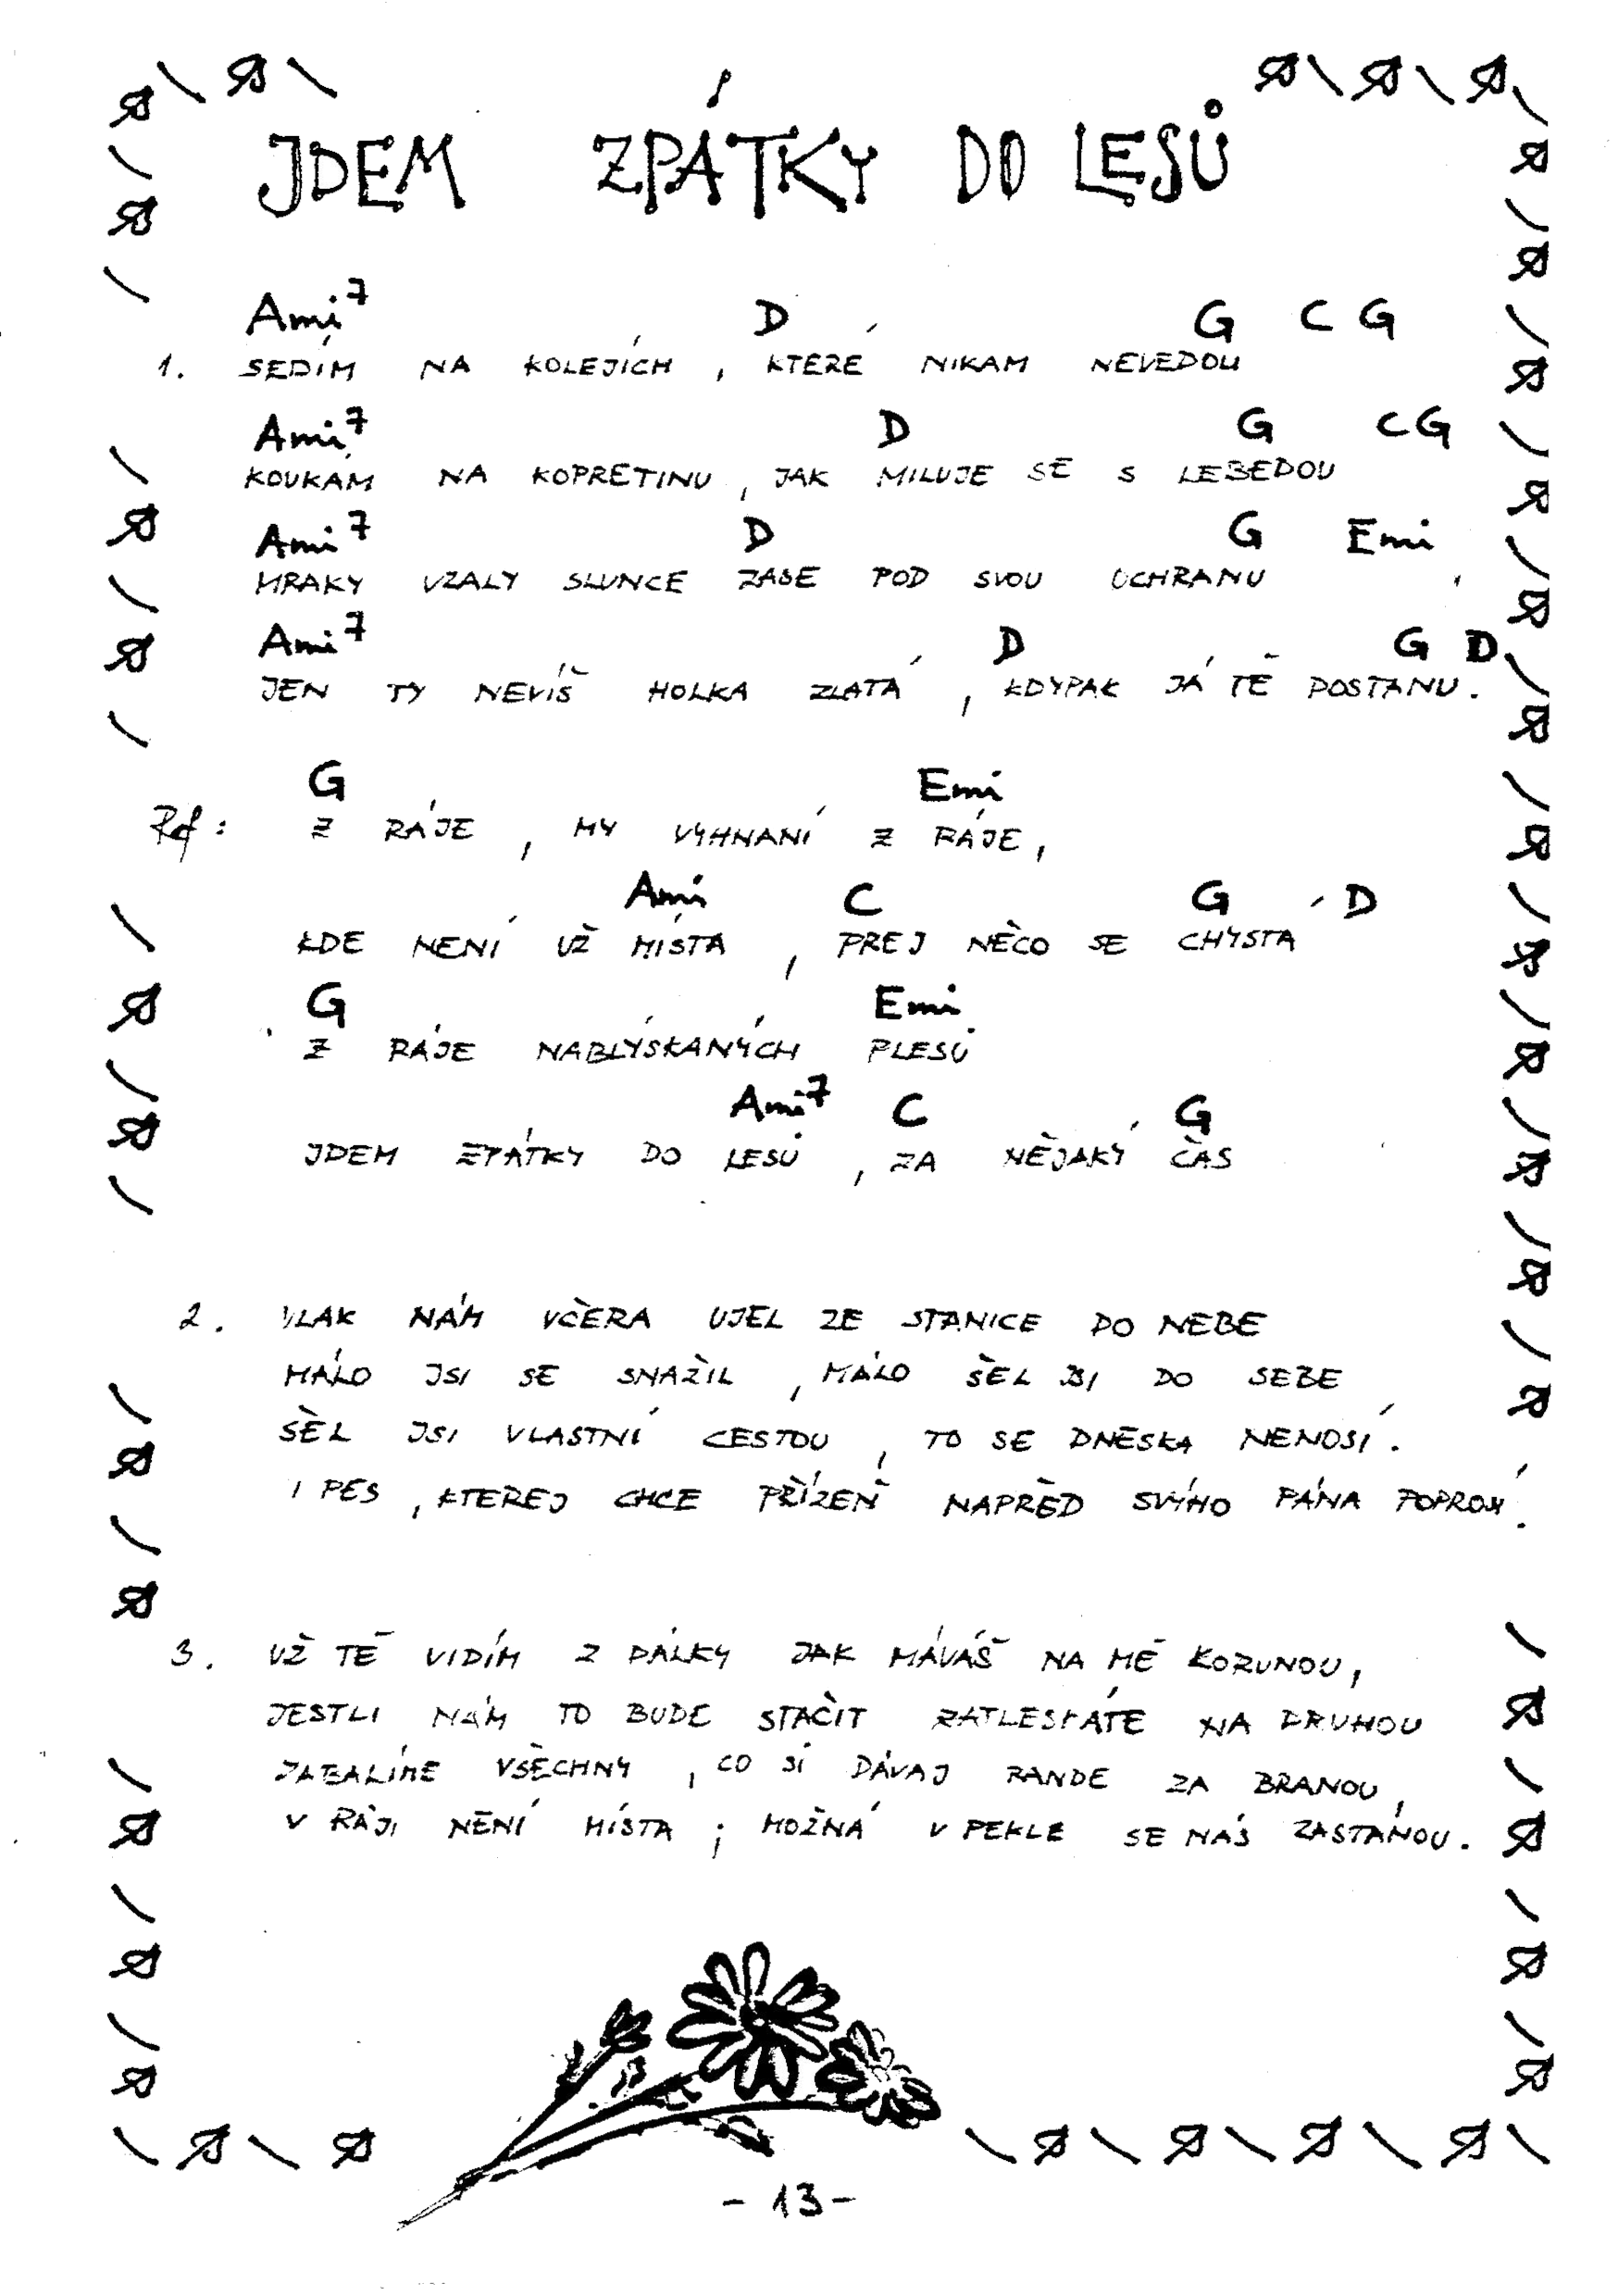 JDEM ZPÁTKY DO LESŮ
Ami7 D G C G
1. SEDÍM NA KOLEJÍCH, KTERÉ NIKAM NEVEDOU
Ami7 D G C G
KOUKÁM NA KOPRETINU, JAK MILUJE SE S LEBEDOU
Ami7 D G Emi
MRAKY VZALY SLUNCE ZASE POD SVOU OCHRANU
Ami7 D G D
JEN TY NEVÍŠ HOLKA ZLATÁ, KDYPAK JÁ TĚ DOSTANU.
G Emi
Ref: Z RÁJE, MY VYHNANÍ Z RÁJE,
Ami C G D
KDE NENÍ UŽ MÍSTA, PREJ NĚCO SE CHYSTÁ
G Emi
Z RÁJE NABLÝSKANÝCH PLESŮ
Ami7 C G
JDEM ZPÁTKY DO LESŮ, ZA NĚJAKÝ ČAS
2. VLAK NÁM VČERA UJEL ZE STANICE DO NEBE
MÁLO JSI SE SNAŽIL, MÁLO ŠEL JSI DO SEBE
ŠEL JSI VLASTNÍ CESTOU, TO SE DNESKA NENOSÍ.
I PES, KTEREJ CHCE PŘÍZEŇ NAPŘED SVÝHO PÁNA POPROSÍ.
3. UŽ TĚ VIDÍM Z DÁLKY JAK MÁVÁŠ NA MĚ KORUNOU,
JESTLI NÁM TO BUDE STAČIT ZATLESKÁTE NA DRUHOU
ZABALÍME VŠECHNY, CO SI DÁVAJ RANDE ZA BRANOU,
V RÁJI NENÍ MÍSTA; MOŽNÁ V PEKLE SE NÁS ZASTANOU.
- 13 -